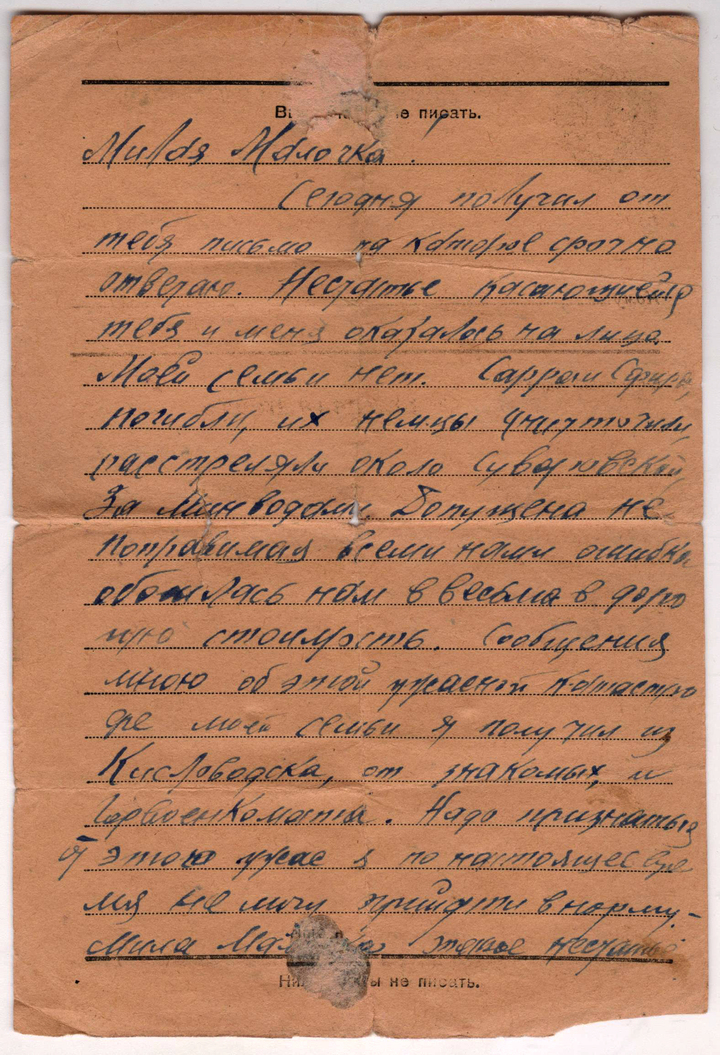 не писать.
Милая Малочка.
Сегодня получил от
тебя письмо на которое срочно
отвечаю. Несчастье касающиеся
тебя и меня оказалось на лицо
Моей семьи нет. Сарра и
погибли, их немцы уничтожили,
расстреляли около Суворовской,
За Минводами Допущена не
поправимая всеми нами ошибка
обошлась нам в весьма в доро
гую стоимость. Сообщения
мною об этой ужасной катастро
фе моей семьи я получил из
Кисловодска, от знакомых, и
Горвоенкомата. Надо признаться
от этого ужас я по настоящее вре
мя не могу прийти в норму.-
Мила несчастье
ы не писать.